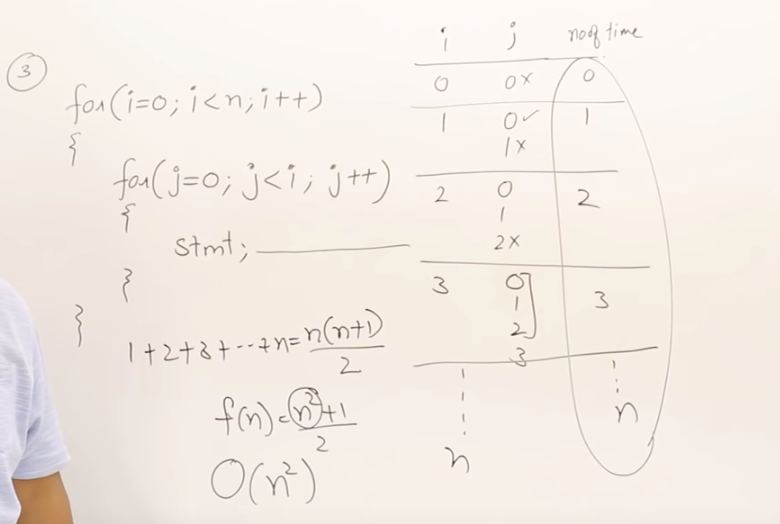 ③
for(i=0; i<n; i++)
{
for(j=0; j<i; j++)
{
stmt;
}
}
1+2+3+---+n=n(n+1)/2
f(n)=n²+1/2
O(n²)
i j no of time
0 0x 0
1 0✓ 1
1x
2 0 2
1
2x
3 0 3
1
2
3
n n